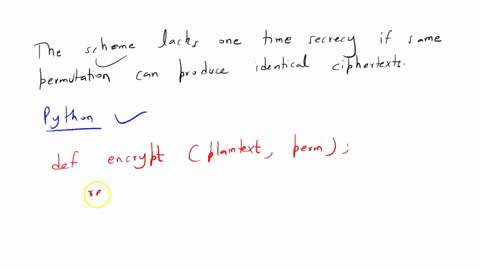 The scheme lacks one time secrecy if same
permutation can produce identical ciphertexts.
Python
def encrypt (plaintext, perm);
re